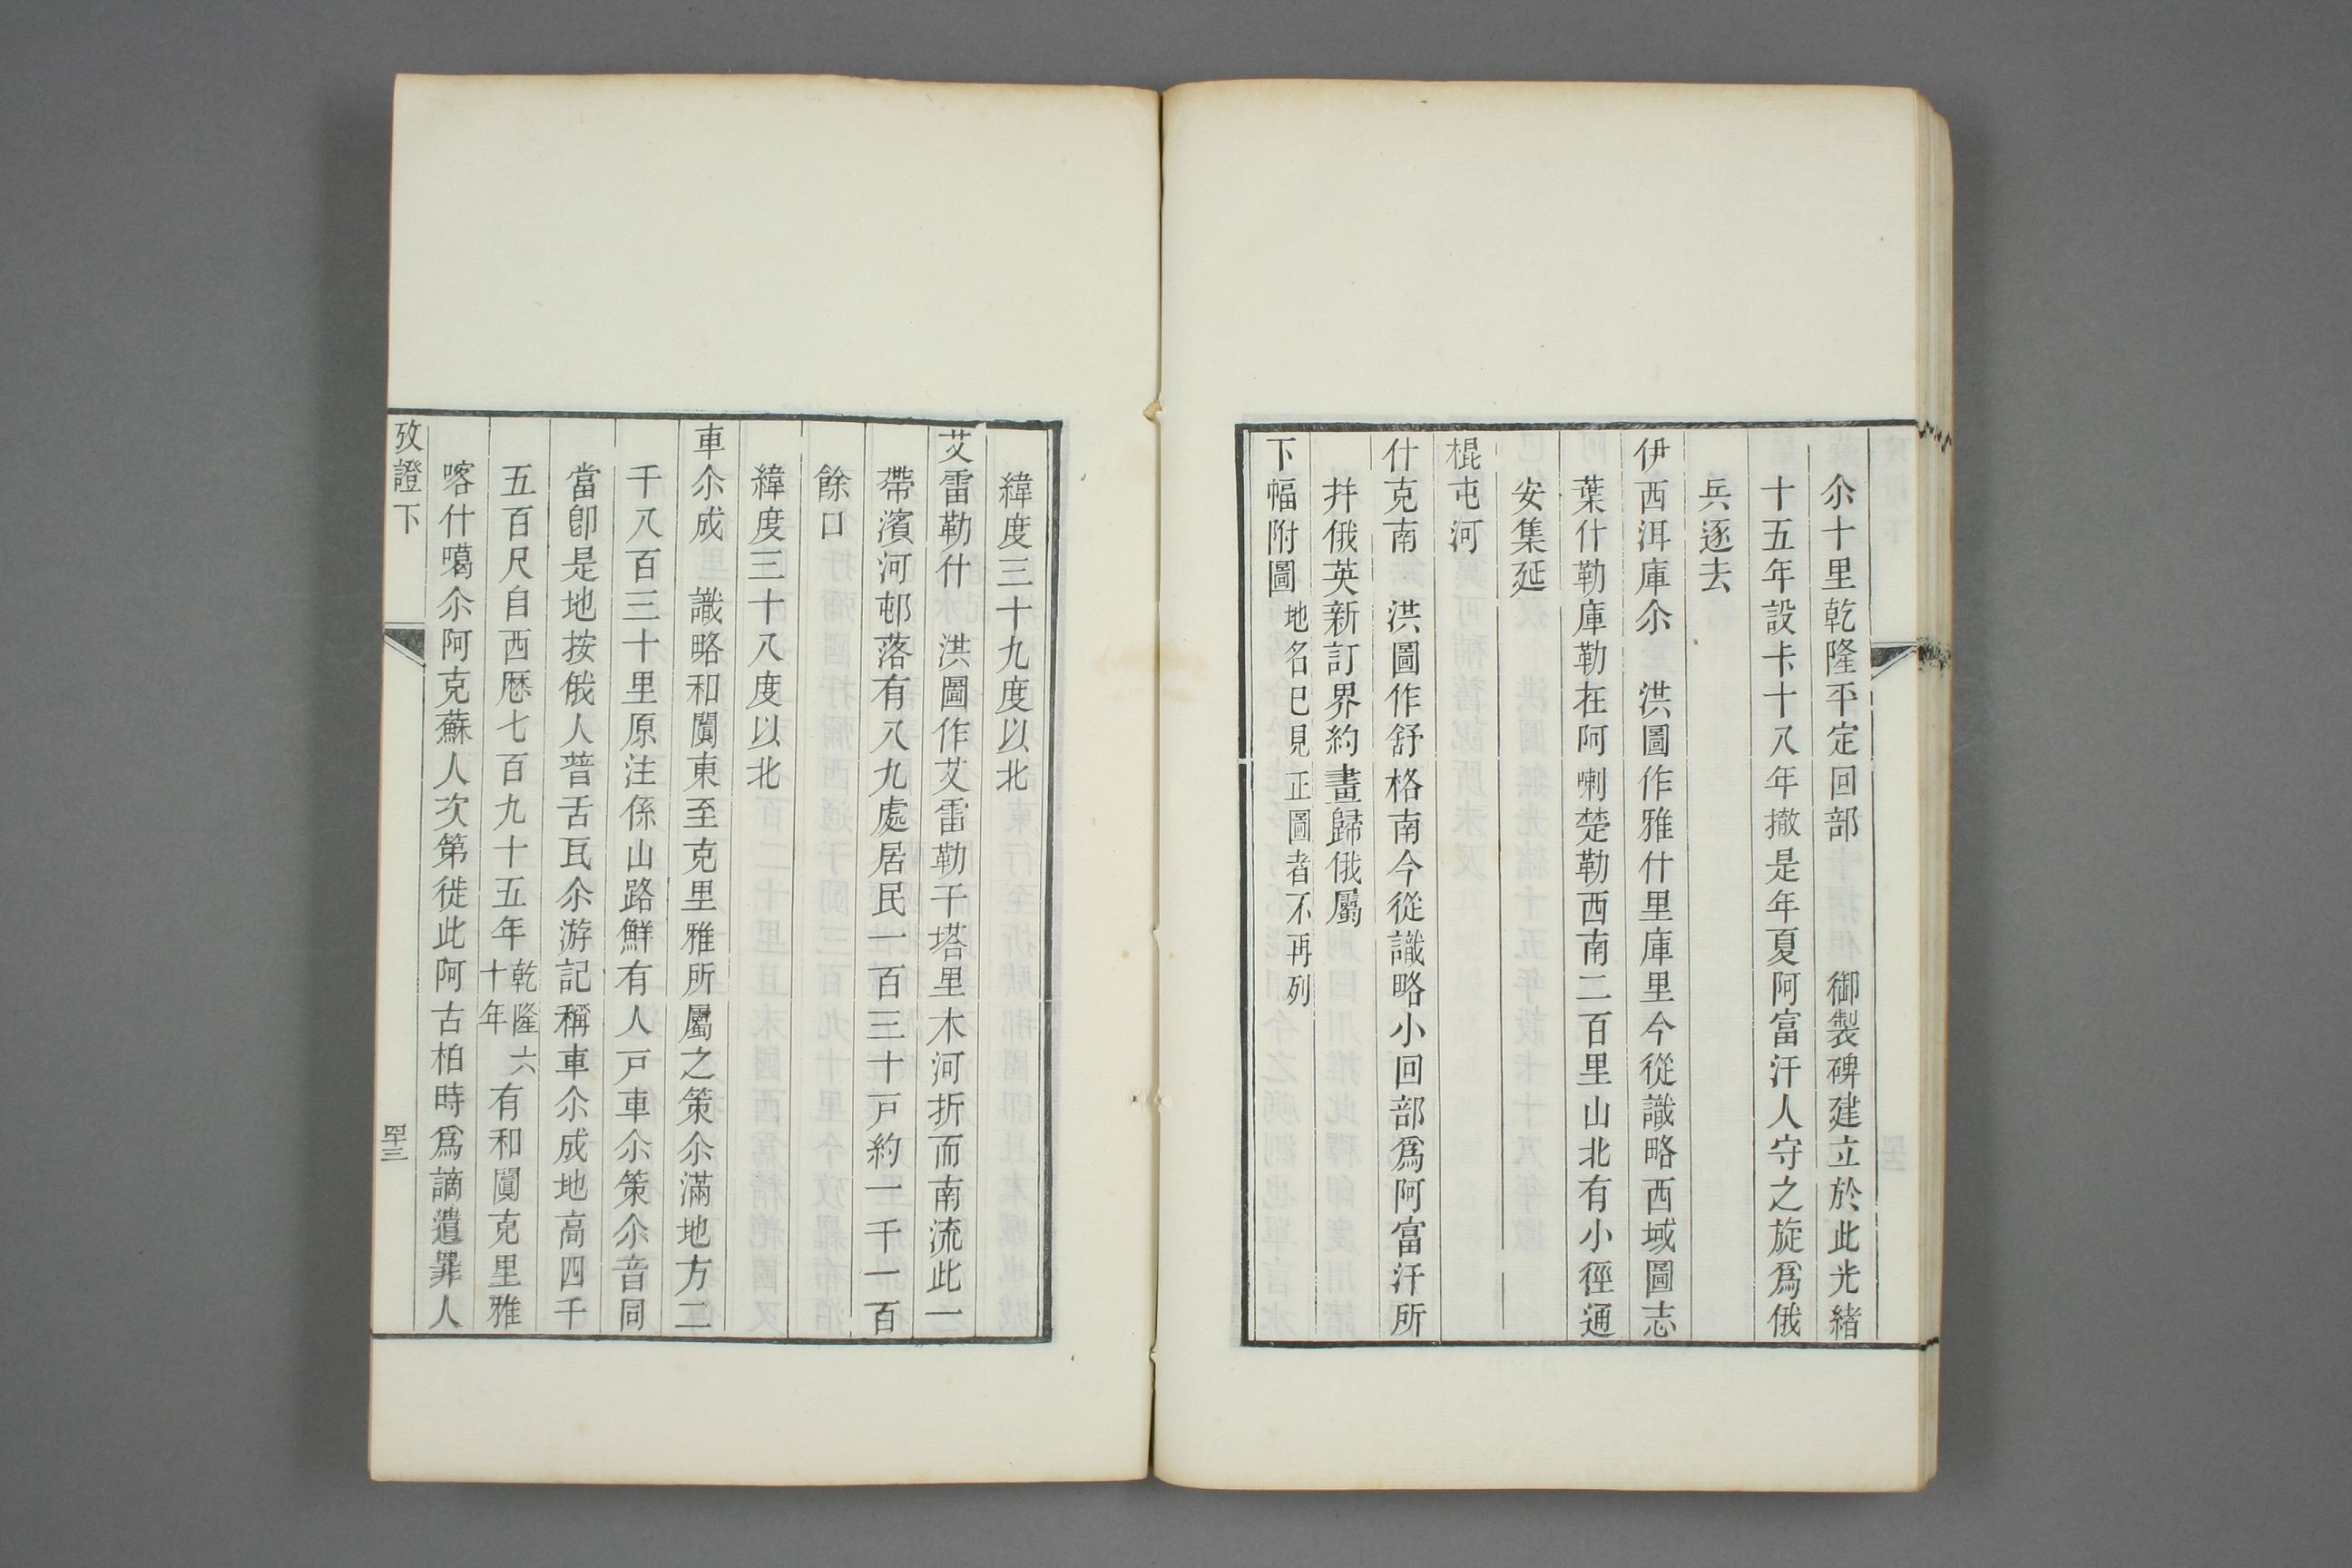 尒十里乾隆平定回部　御製碑建立於此光緒
十五年設卡十八年撤是年夏阿富汗人守之旋爲俄
兵逐去
伊西洱庫尒　洪圖作雅什里庫里今從識略西域圖志
葉什勒庫勒在阿喇楚勒西南二百里山北有小徑通
安集延
棍屯河
什克南　洪圖作舒格南今從識略小回部爲阿富汗所
并俄英新訂界約畫歸俄屬
下幅附圖地名已見正圖者不再列
緯度三十九度以北
艾雷勒什　洪圖作艾雷勒千塔里木河折而南流此一
帶濱河邨落有八九處居民一百三十戸約一千一百
餘口
緯度三十八度以北
車尒成　識略和闐東至克里雅所屬之策尒滿地方二
千八百三十里原注係山路鮮有人戸車尒策尒音同
當卽是地按俄人普舌瓦尒游記稱車尒成地高四千
五百尺自西厯七百九十五年乾隆六十年有和闐克里雅
喀什噶尒阿克蘇人次第徙此阿古柏時爲謫遣罪人
攷證下
四十三